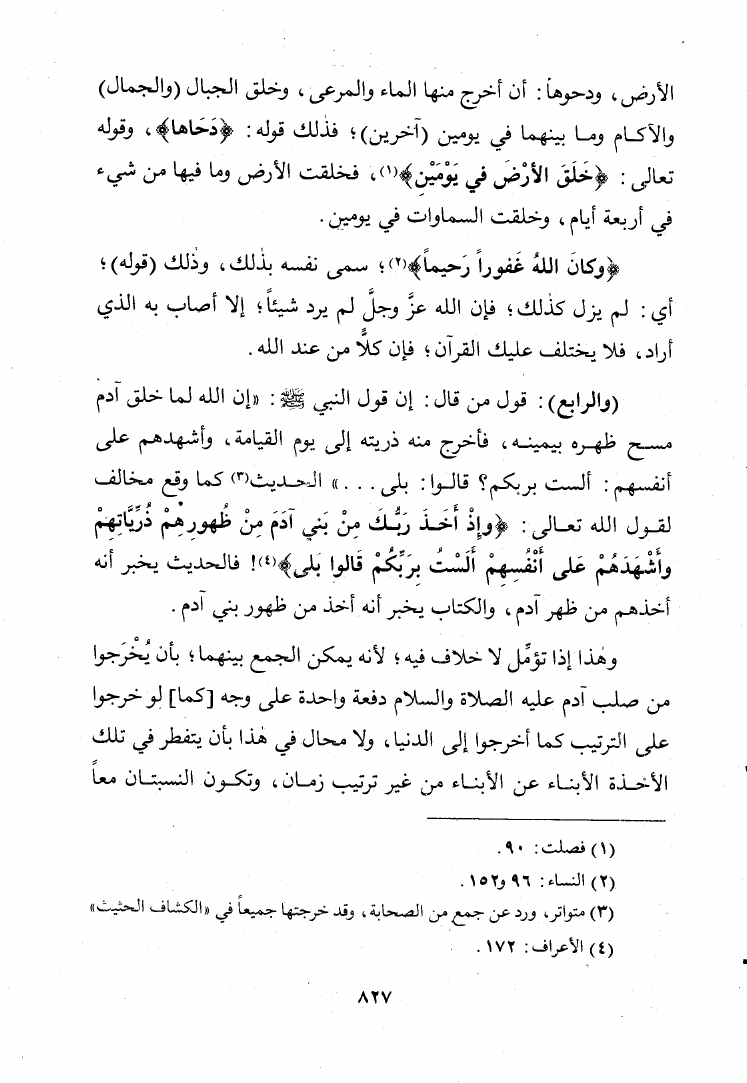 الأرض، ودحوهاً: أن أخرج منها الماء والمرعى، وخلق الجبال (والجمال)
والآكام وما بينهما في يومين (آخرين)؛ فذلك قوله: ﴿دَحَاها﴾، وقوله
تعالى: ﴿خَلَقَ الأرْضَ في يَوْمَيْنِ﴾(١)، فخلقت الأرض وما فيها من شيء
في أربعة أيام، وخلقت السماوات في يومين.
﴿وكانَ اللهُ غَفوراً رَحيماً﴾(٢)؛ سمى نفسه بذلك، وذلك (قوله)؛
أي: لم يزل كذلك؛ فإن الله عزَّ وجلَّ لم يرد شيئاً؛ إلا أصاب به الذي
أراد، فلا يختلف عليك القرآن؛ فإن كلًّا من عند الله.
(والرابع): قول من قال: إن قول النبي ﷺ: «إن الله لما خلق آدم
مسح ظهره بيمينه، فأخرج منه ذريته إلى يوم القيامة، وأشهدهم على
أنفسهم: ألست بربكم؟ قالوا: بلى...» الحديث(٣) كما وقع مخالف
لقول الله تعالى: ﴿وإذْ أَخَذَ رَبُّكَ مِنْ بَني آدَمَ مِنْ ظُهورِهْمْ ذُرِّيَّاتِهِمْ
وأَشْهَدَهُمْ عَلى أَنْفُسِهِمْ أَلَسْتُ بِرَبِّكُمْ قَالوا بَلى﴾(٤)! فالحديث يخبر أنه
أخذهم من ظهر آدم، والكتاب يخبر أنه أخذ من ظهور بني آدم.
وهٰذا إذا تؤمِّل لا خلاف فيه؛ لأنه يمكن الجمع بينهما؛ بأن يُخْرَجوا
من صلب آدم عليه الصلاة والسلام دفعة واحدة على وجه [كما] لو خرجوا
على الترتيب كما أخرجوا إلى الدنيا، ولا محال في هٰذا بأن يتفطر في تلك
الأخذة الأبناء عن الأبناء من غير ترتيب زمان، وتكون النسبتان معاً
(١) فصلت: ٩٠.
(٢) النساء: ٩٦ و١٥٢.
(٣) متواتر، ورد عن جمع من الصحابة، وقد خرجتها جميعاً في «الكشاف الحثيث»
(٤) الأعراف: ١٧٢.
٨٢٧